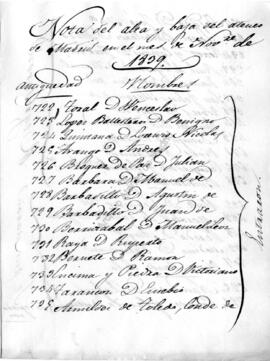 Nota del alta y baja del ateneo
de Madrid en el mes de Novbre de
1839.
Antiguedad Nombres
722 Toral D Wenceslao
723 Lopez Ballesteros D Benigno
724 Quintana D Lauro Nicolas
725 Arango D Andres
726 Blazquez de Paz D Julian
727 Bárbara D Manuel de
728 Barbadillo D Agustin de
729 Barbadillo D Juan de
730 D Manuel Leon
731 Raya D Ruperto
732 Bernete D Ramon
733 Encima y Piedra D Victoriano
734 Tarancon D Eusebio
735 de Toledo, Conde de
Entraron.